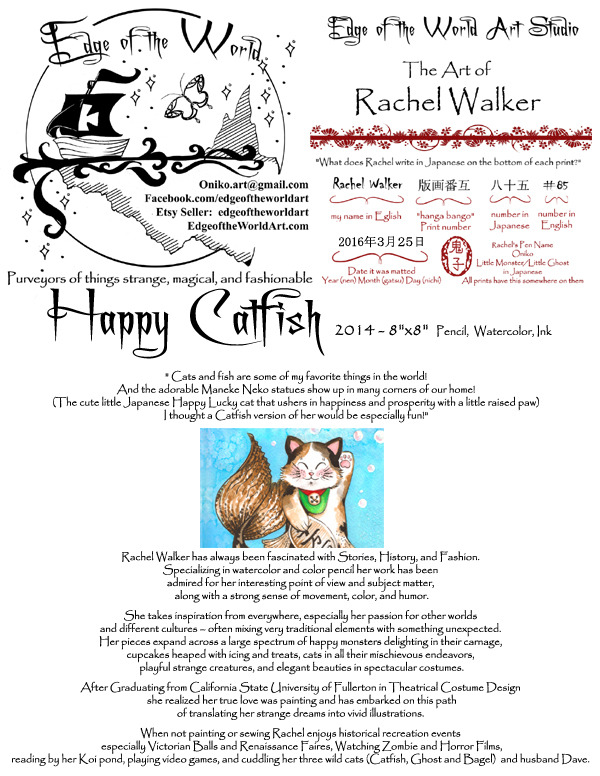 Edge of the World
Oniko.art@gmail.com
Facebook.com/edgeoftheworldart
Etsy Seller: edgeoftheworldart
EdgeoftheWorldArt.com
Purveyors of things strange, magical, and fashionable
Edge of the World Art Studio
The Art of
Rachel Walker
"What does Rachel write in Japanese on the bottom of each print?"
Rachel Walker 版画番互 八十五 #85
my name in Eglish
"hanga bango"
Print number
number in
Japanese
number in
English
2016年3月25日
Date it was matted
Year (nen) Month (gatsu) Day (nichi)
鬼子
Rachel's Pen Name
Oniko
Little Monster/Little Ghost
in Japanese
All prints have this somewhere on them
Happy Catfish 2014 ~ 8"x8" Pencil, Watercolor, Ink
" Cats and fish are some of my favorite things in the world!
And the adorable Maneke Neko statues show up in many corners of our home!
(The cute little Japanese Happy Lucky cat that ushers in happiness and prosperity with a little raised paw)
I thought a Catfish version of her would be especially fun!"
Rachel Walker has always been fascinated with Stories, History, and Fashion.
Specializing in watercolor and color pencil her work has been
admired for her interesting point of view and subject matter,
along with a strong sense of movement, color, and humor.
She takes inspiration from everywhere, especially her passion for other worlds
and different cultures – often mixing very traditional elements with something unexpected.
Her pieces expand across a large spectrum of happy monsters delighting in their carnage,
cupcakes heaped with icing and treats, cats in all their mischievous endeavors,
playful strange creatures, and elegant beauties in spectacular costumes.
After Graduating from California State University of Fullerton in Theatrical Costume Design
she realized her true love was painting and has embarked on this path
of translating her strange dreams into vivid illustrations.
When not painting or sewing Rachel enjoys historical recreation events
especially Victorian Balls and Renaissance Faires, Watching Zombie and Horror Films,
reading by her Koi pond, playing video games, and cuddling her three wild cats (Catfish, Ghost and Bagel) and husband Dave.